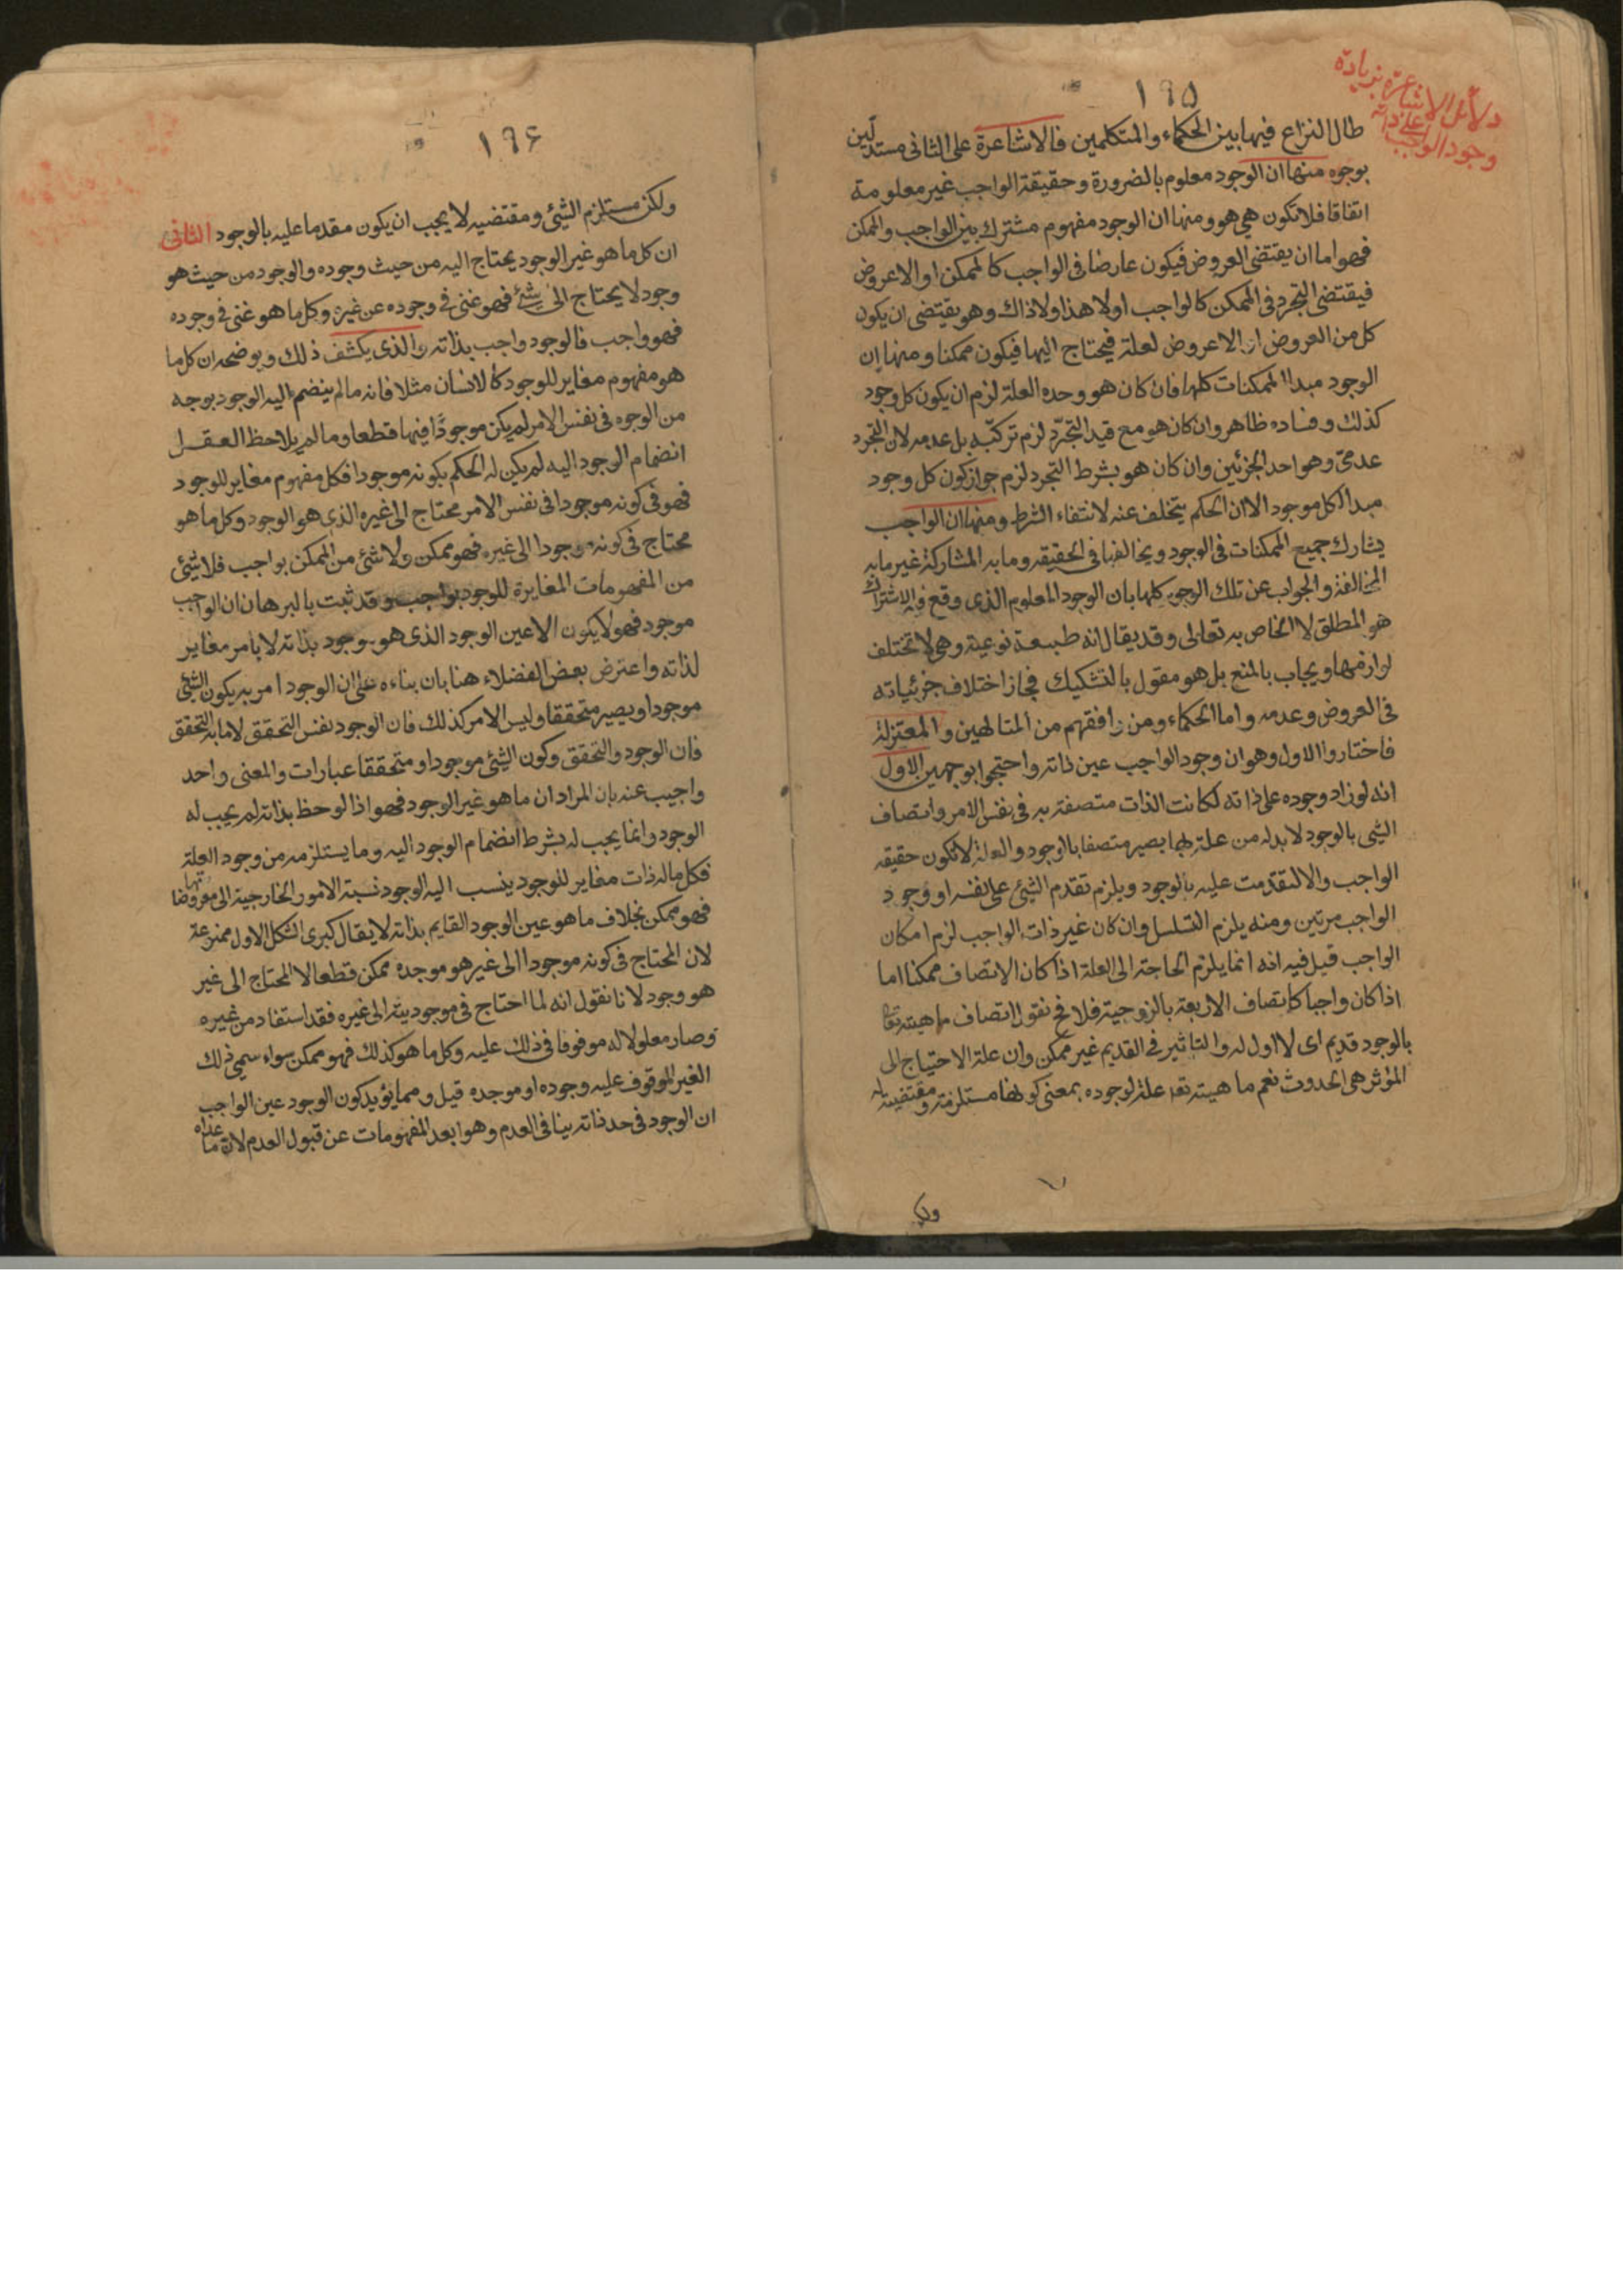 ١٩٥
دلائل الاشاعرة بزيادة
وجود الواجب على ذاته
طال النزاع فيها بين الحكماء والمتكلمين فالاشاعرة على الثانى مستدلين
بوجوه منها ان الوجود معلوم بالضرورة وحقيقة الواجب غير معلومة
اتفاقا فلا تكون هي هو ومنها ان الوجود مفهوم مشترك بين الواجب والممكن
فهو اما ان يقتضى العروض فيكون عارضا فى الواجب كالممكن او الاعروض
فيقتضى التجرد فى الممكن كالواجب اولا هذا ولا ذاك وهو يقتضى ان يكون
كل من العروض او الاعروض لعلة فيحتاج اليها فيكون ممكنا ومنها ان
الوجود مبدا الممكنات كلها فان كان هو وحده العلة لزم ان يكون كل وجود
كذلك وفساده ظاهر وان كان هو مع قيد التجرد لزم تركبه بل عدمه لان التجرد
عدمى وهو احد الجزئين وان كان هو بشرط التجرد لزم جواز كون كل وجود
مبدا لكل موجود الا ان الحكم يتخلف عنه لانتفاء الشرط ومنها ان الواجب
يشارك جميع الممكنات فى الوجود ويخالفها فى الحقيقه وما به المشاركة غير ما به
المخالفة والجواب عن تلك الوجوه كلها بان الوجود المعلوم الذى وقع فيه الاشتراك
هو المطلق لا الخاص به تعالى وقد يقال انه طبيعة نوعية وهى لا تختلف
لوازمها ويجاب بالمنع بل هو مقول بالتشكيك فجاز اختلاف جزئياته
فى العروض وعدمه واما الحكماء ومن وافقهم من المتالهين والمعتزلة
فاختاروا الاول وهو ان وجود الواجب عين ذاته واحتجوا بوجهين الاول
انه لو زاد وجوده على ذاته لكانت الذات متصفة به فى نفس الامر واتصاف
الشى بالوجود لا بد له من علة بها يصير متصفا بالوجود والعلة لا تكون حقيقه
الواجب والا لتقدمت عليه بالوجود ويلزم تقدم الشئ على نفسه او وجود
الواجب مرتين ومنه يلزم التسلسل وان كان غير ذات الواجب لزم امكان
الواجب قيل فيه انه انما يلزم الحاجة الى العلة اذا كان الاتصاف ممكنا اما
اذا كان واجبا كاتصاف الاربعة بالزوجية فلا فح نقول اتصاف ماهيته تعا
بالوجود قديم اى لا اول له والتاثير فى القديم غير ممكن وان علة الاحتياج الى
المؤثر هى الحدوث نعم ماهيته تعا علة لوجوده بمعنى كونها مستلزمة ومقتضية له
ولكن
١٩۶
ولكن مستلزم الشئ ومقتضيه لا يجب ان يكون مقدما عليه بالوجود الثانى
ان كل ما هو غير الوجود يحتاج اليه من حيث وجوده والوجود من حيث هو
وجود لا يحتاج الى شئ فهو غنى فى وجوده عن غيره وكل ما هو غنى فى وجوده
فهو واجب فالوجود واجب بذاته والذى يكشف ذلك ويوضحه ان كل ما
هو مفهوم مغاير للوجود كالانسان مثلا فانه ما لم ينضم اليه الوجود بوجه
من الوجوه فى نفس الامر لم يكن موجودا فيها قطعا وما لم يلاحظ العقل
انضمام الوجود اليه لم يكن له الحكم بكونه موجودا فكل مفهوم مغاير للوجود
فهو فى كونه موجودا فى نفس الامر محتاج الى غيره الذى هو الوجود وكل ما هو
محتاج فى كونه موجودا الى غيره فهو ممكن ولا شئ من الممكن بواجب فلا شئ
من المفهومات المغايرة للوجود بواجب وقد ثبت بالبرهان ان الواجب
موجود فهو لا يكون الا عين الوجود الذى هو موجود بذاته لا بامر مغاير
لذاته واعترض بعض الفضلاء هنا بان بناءه على ان الوجود امر به يكون الشئ
موجودا ويصير متحققا وليس الامر كذلك فان الوجود نفس التحقق لا ما به التحقق
فان الوجود والتحقق وكون الشئ موجودا ومتحققا عبارات والمعنى واحد
واجيب عنه بان المراد ان ما هو غير الوجود فهو اذا لوحظ بذاته لم يجب له
الوجود وانما يجب له بشرط انضمام الوجود اليه وما يستلزمه من وجود العلة
فكل ماله ذات مغاير للوجود ينسب اليه الوجود نسبة الامور الخارجية الى معروضاتها
فهو ممكن بخلاف ما هو عين الوجود القايم بذاته لا يقال كبرى الشكل الاول ممنوعة
لان المحتاج فى كونه موجودا الى غير هو موجده ممكن قطعا لا المحتاج الى غير
هو وجود لانا نقول انه لما احتاج فى موجوديته الى غيره فقد استفاد من غيره
وصار معلولا له موقوفا فى ذلك عليه وكل ما هو كذلك فهو ممكن سواء سمى ذلك
الغير الموقوف عليه وجوده او موجده قيل ومما يؤيد كون الوجود عين الواجب
ان الوجود فى حد ذاته ينافى العدم وهو ابعد المفهومات عن قبول العدم لان ما عداه